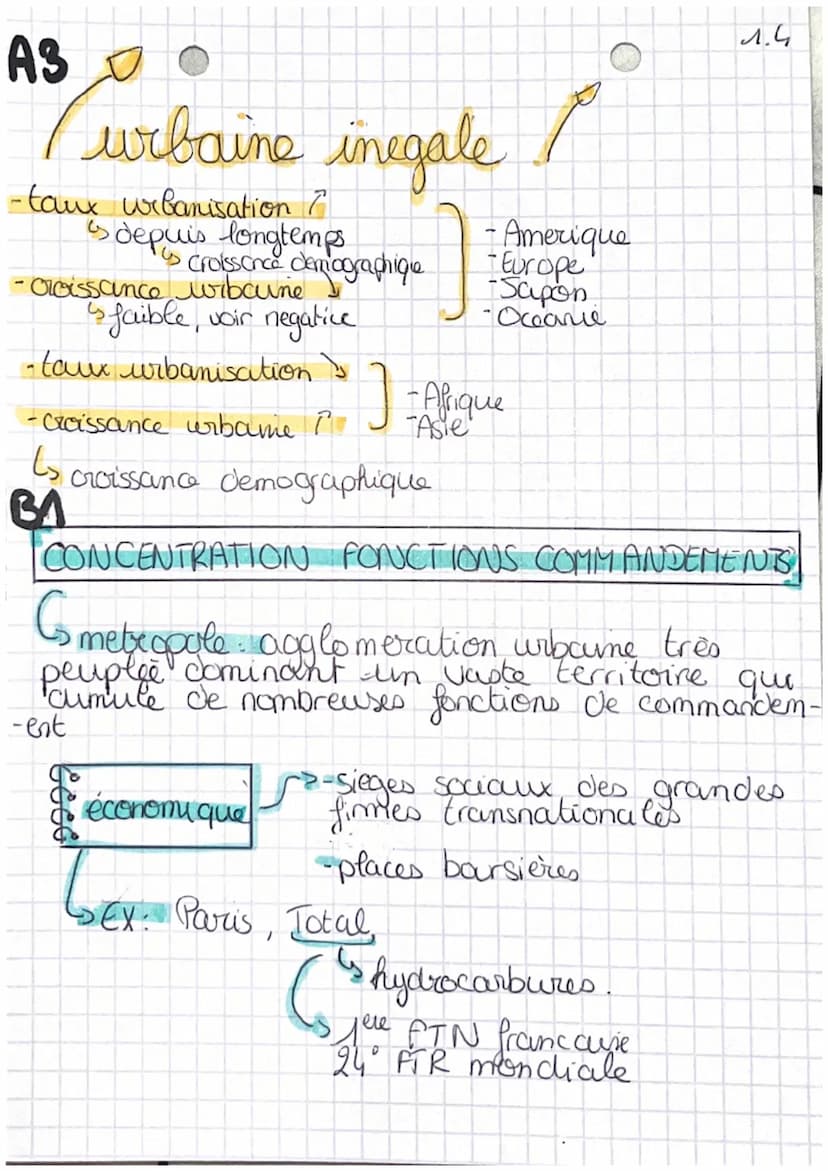 1.4
A3
urbaine inegale
- taux urbanisation ↗
↳ depuis longtemps
↳ croissance demographique
- croissance urbaine ↘
↳ faible, voir negative
- Amerique
- Europe
- Japon
- Oceanie
- taux urbanisation ↘
- croissance urbaine ↗
- Afrique
- Asie
↳ croissance demographique
B1
CONCENTRATION FONCTIONS COMMANDEMENTS
↳ metropole : agglomeration urbaine très
peuplée dominant un vaste territoire qui
cumule de nombreuses fonctions de commandem-
-ent
économique
→ - sieges sociaux des grandes
firmes transnationales
- places barsières
↳ EX : Paris, Total,
↳ hydrocarbures.
↳ 1ère FTN francaise
24° FTR mondiale